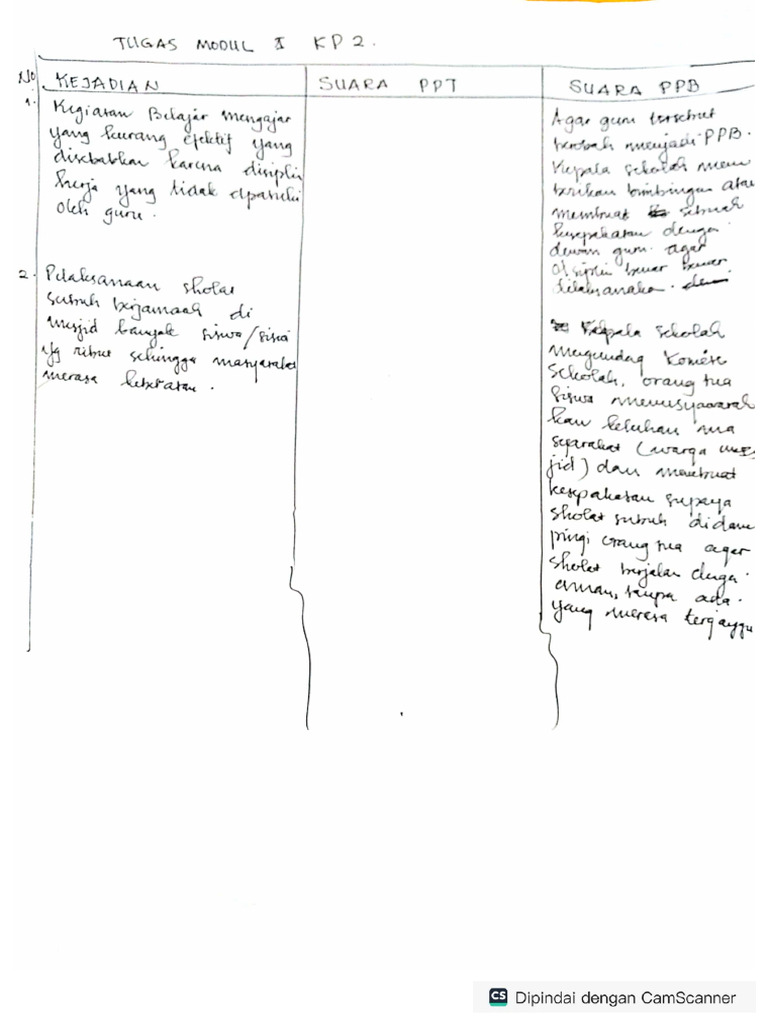 TUGAS MODUL I KP 2.
No KEJADIAN SUARA PPT SUARA PPB
1. Kegiatan Belajar Mengajar
yang kurang efektif yang
disebabkan karena disiplin
kerja yang tidak dipatuhi
oleh guru.
Agar guru tersebut
berubah menjadi PPB.
Kepala sekolah mem
berikan bimbingan atau
membuat sebuah
kesepakatan dengan
dewan guru agar
disiplin benar benar
dilaksanakan.
2. Pelaksanaan sholat
subuh berjamaah di
mesjid banyak siswa/siswi
yg ribut sehingga masyarakat
merasa keberatan.
Kepala sekolah
mengundang Komite
sekolah, orang tua
siswa memusyawarah
kan keluhan ma
syarakat (warga mes
jid) dan membuat
kesepakatan supaya
sholat subuh didam
pingi orang tua agar
sholat berjalan denga
aman, tanpa ada
yang merasa terganggu
CS Dipindai dengan CamScanner